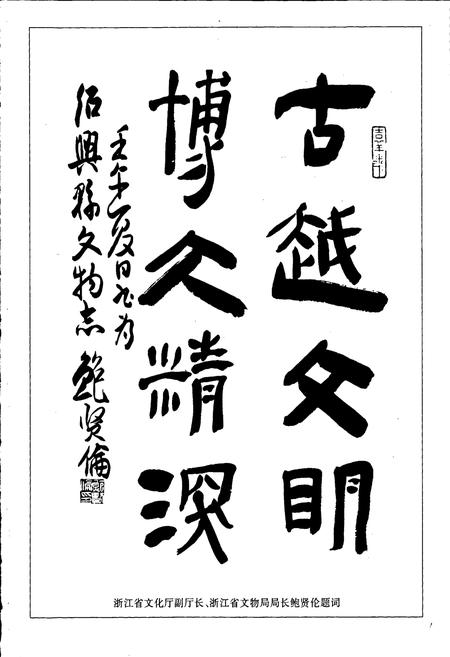 古越文明
博大精深
壬午夏日书为
绍興縣文物志 鲍贤倫
浙江省文化厅副厅长、浙江省文物局局长鲍贤伦题词